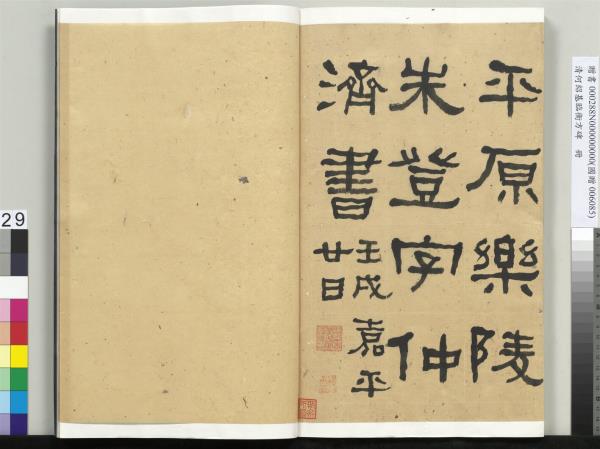 平原樂陵
朱登字仲
濟書
壬戌嘉平
廿日
贈書 000288N000000000(國贈 006085)
清何紹基臨衡方碑 冊
29